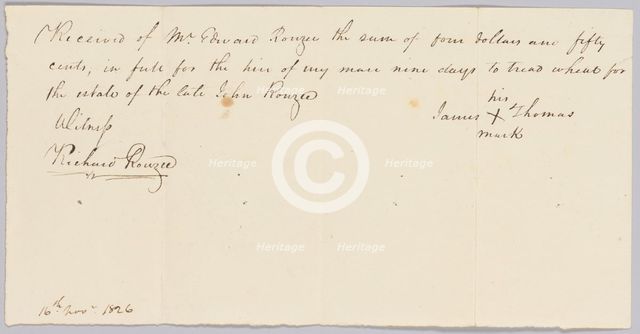 Received of Mr. Edward Rouzee the sum of four dollars and fifty
cents, in full for the hire of my mare nine days to tread wheat for
the estate of the late John Rouzee
his
James X Thomas
mark
Witness
Richard Rouzee
16th Novr. 1826
Heritage
Heritage Heritage
Heritage Heritage
©